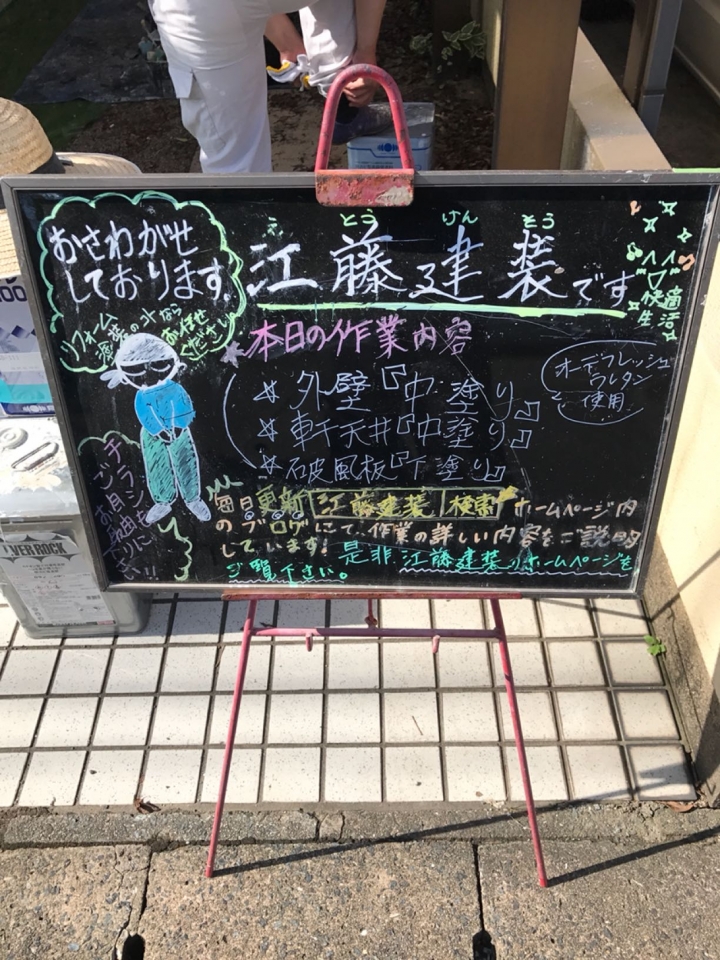 おさわがせ
しております。
えとうけんそう
江藤建装です
快適
生活
リフォーム
塗装の事なら
お任せ
ください
本日の作業内容
☆外壁『中塗り』
☆軒天井『中塗り』
☆破風板『下塗り』
オーデフレッシュ
ウレタン
を使用
チラシ
ご自由に
お取り下さい!!
毎日更新 江藤建装 検索 ホームページ内
のブログにて、作業の詳しい内容をご説明
しています! 是非、江藤建装のホームページを
ご覧下さい。
VER ROCK